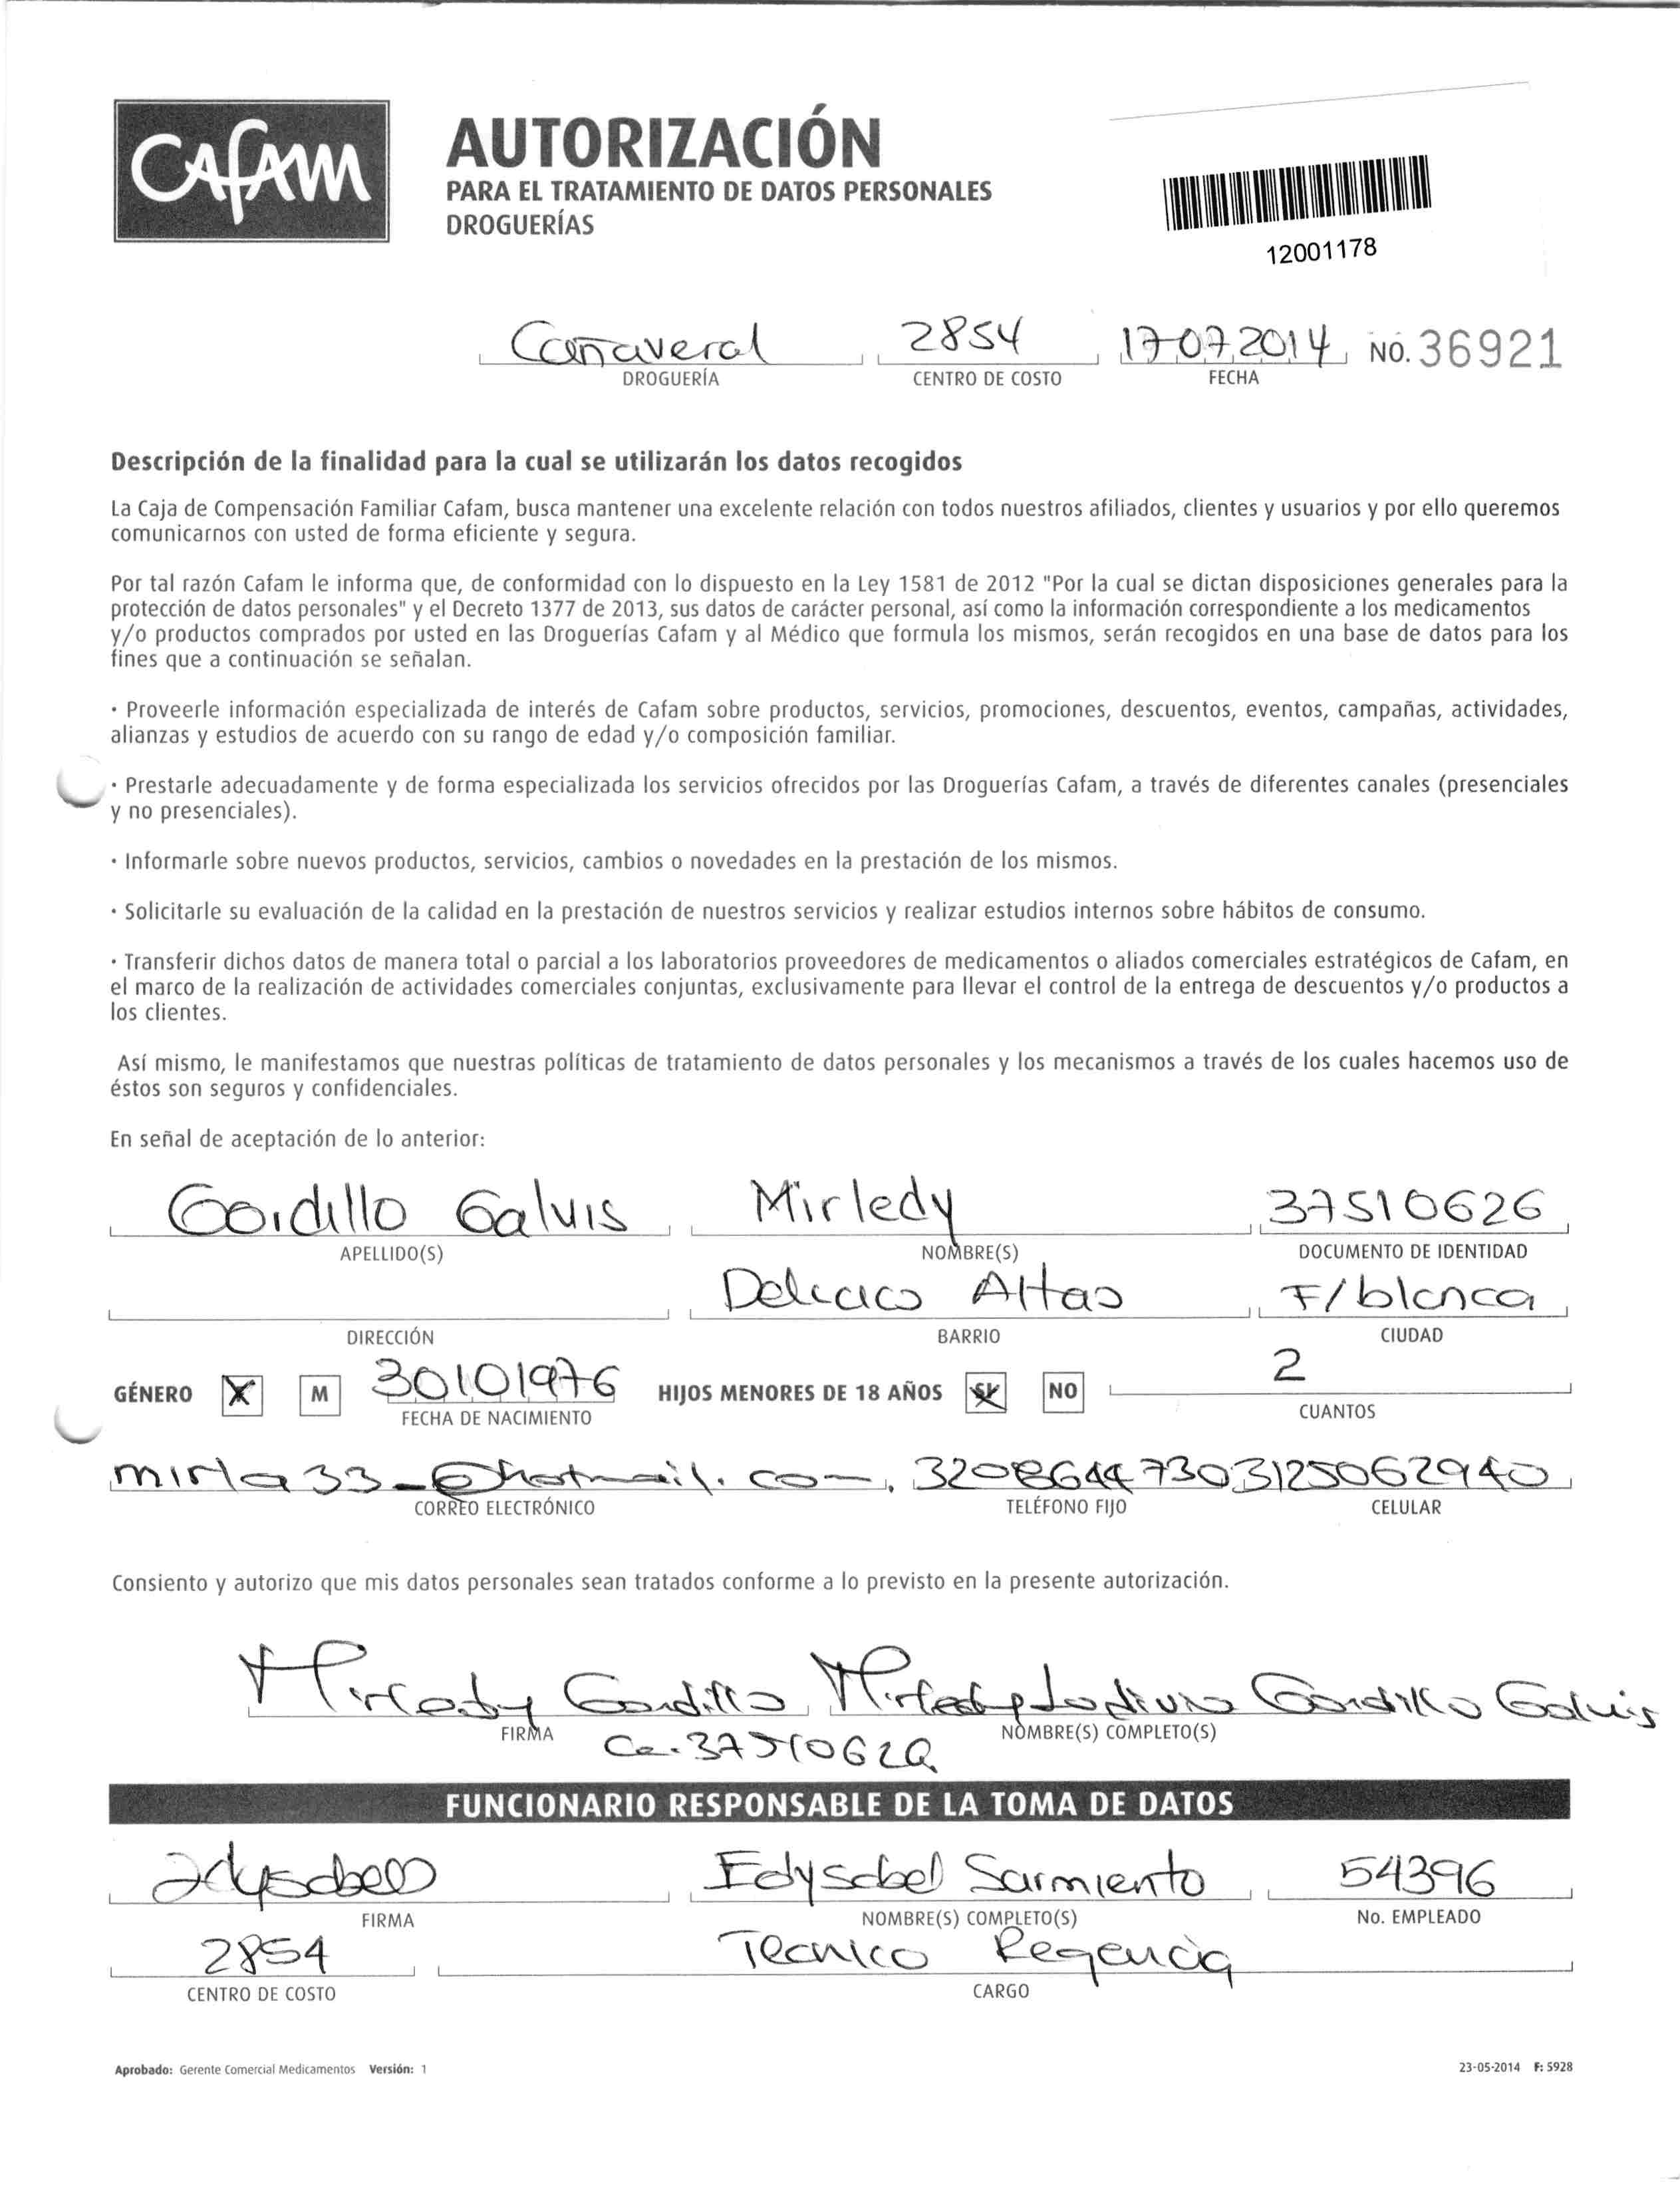 Cafam
AUTORIZACIÓN
PARA EL TRATAMIENTO DE DATOS PERSONALES
DROGUERÍAS
12001178
Cañaveral 2854 17072014 NO. 36921
DROGUERÍA CENTRO DE COSTO FECHA
Descripción de la finalidad para la cual se utilizarán los datos recogidos
La Caja de Compensación Familiar Cafam, busca mantener una excelente relación con todos nuestros afiliados, clientes y usuarios y por ello queremos
comunicarnos con usted de forma eficiente y segura.
Por tal razón Cafam le informa que, de conformidad con lo dispuesto en la Ley 1581 de 2012 "Por la cual se dictan disposiciones generales para la
protección de datos personales" y el Decreto 1377 de 2013, sus datos de carácter personal, así como la información correspondiente a los medicamentos
y/o productos comprados por usted en las Droguerías Cafam y al Médico que formula los mismos, serán recogidos en una base de datos para los
fines que a continuación se señalan.
· Proveerle información especializada de interés de Cafam sobre productos, servicios, promociones, descuentos, eventos, campañas, actividades,
alianzas y estudios de acuerdo con su rango de edad y/o composición familiar.
· Prestarle adecuadamente y de forma especializada los servicios ofrecidos por las Droguerías Cafam, a través de diferentes canales (presenciales
y no presenciales).
· Informarle sobre nuevos productos, servicios, cambios o novedades en la prestación de los mismos.
· Solicitarle su evaluación de la calidad en la prestación de nuestros servicios y realizar estudios internos sobre hábitos de consumo.
· Transferir dichos datos de manera total o parcial a los laboratorios proveedores de medicamentos o aliados comerciales estratégicos de Cafam, en
el marco de la realización de actividades comerciales conjuntas, exclusivamente para llevar el control de la entrega de descuentos y/o productos a
los clientes.
Así mismo, le manifestamos que nuestras políticas de tratamiento de datos personales y los mecanismos a través de los cuales hacemos uso de
éstos son seguros y confidenciales.
En señal de aceptación de lo anterior:
Gordillo Galvis Mirledy 37510626
APELLIDO(S) NOMBRE(S) DOCUMENTO DE IDENTIDAD
Delicias Altas F/blanca
DIRECCIÓN BARRIO CIUDAD
GÉNERO X M 30101976 HIJOS MENORES DE 18 AÑOS SI NO 2
FECHA DE NACIMIENTO CUANTOS
mirla33_@hotmail.com 3208644730 3125062940
CORREO ELECTRÓNICO TELÉFONO FIJO CELULAR
Consiento y autorizo que mis datos personales sean tratados conforme a lo previsto en la presente autorización.
Mirledy Gordillo Mirledy Gordillo Galvis
FIRMA NOMBRE(S) COMPLETO(S)
FUNCIONARIO RESPONSABLE DE LA TOMA DE DATOS
Edysabel Sarmiento 54396
FIRMA NOMBRE(S) COMPLETO(S) No. EMPLEADO
2854 Tecnico Regencia
CENTRO DE COSTO CARGO
Aprobado: Gerente Comercial Medicamentos Versión: 1 23-05-2014 F: 5928